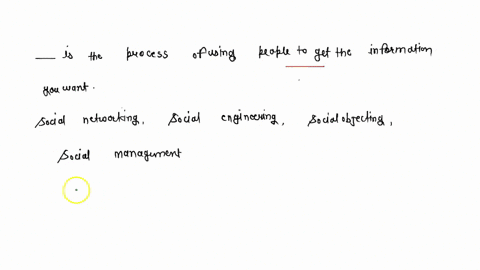 ___ is the process of using people to get the information
you want.
social networking, social engineering, social objecting,
social management